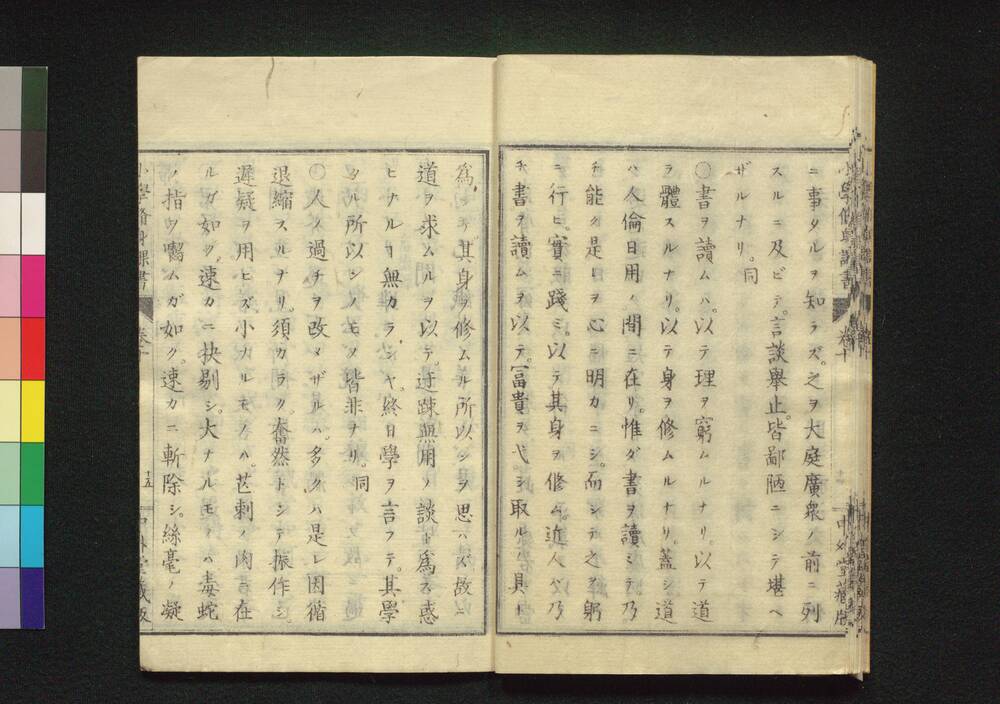 ニ事タルヲ知ラズ。之ヲ大庭廣衆ノ前ニ列
スルニ及ビテ。言談舉止。皆鄙陋ニシテ堪ヘ
ザルナリ。同
○書ヲ讀ムハ。以テ理ヲ窮ムルナリ。以テ道
ヲ體スルナリ。以テ身ヲ修ムルナリ。蓋シ道
ハ人倫日用ノ間ニ在リ。惟ダ書ヲ讀ミテ乃
チ能ク是レヲ心ニ明カニシ。而シテ之ヲ躬
ニ行ヒ。實ニ踐ミ。以テ其身ヲ修ム。近人ハ乃
チ書ヲ讀ムヲ以テ。冨貴ヲ弋シ取ルノ具ト
爲シテ。其身ヲ修ムル所以ンヲ思ハズ。故ニ
道ヲ求ムルヲ以テ。迂踈無用ノ談ト爲ス。惑
ヒナルヿ無カランヤ。終日學ヲ言フテ。其學
タル所以ンノモノ皆非ナリ。同
○人ノ過チヲ改メザルハ。多クハ是レ因循
退縮スルナリ。須カラク。奮然トシテ振作シ。
遲疑ヲ用ヒズ。小ナルモノハ。芒刺ノ肉ニ在
ルガ如ク。速カニ抉剔シ。大ナルモノハ毒蛇
ノ指ヲ囓ムガ如ク。速カニ斬除シ。絲毫ノ凝
小學脩身課書 卷十 十五 中外堂藏版